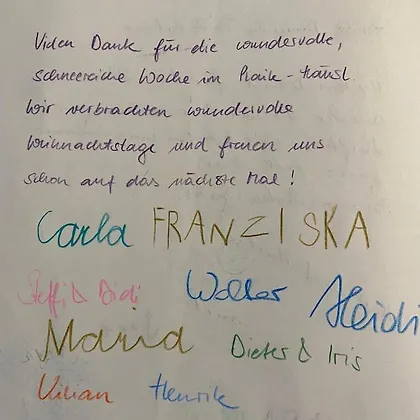 Vielen Dank für die wundervolle,
schneereiche Woche im Haik-Häusl.
Wir verbrachten wundervolle
Weihnachtstage und freuen uns
schon auf das nächste Mal!
Carla FRANZISKA
Steffi & Didi Walter Heidi
Maria Dieter & Iris
Kilian Henrik